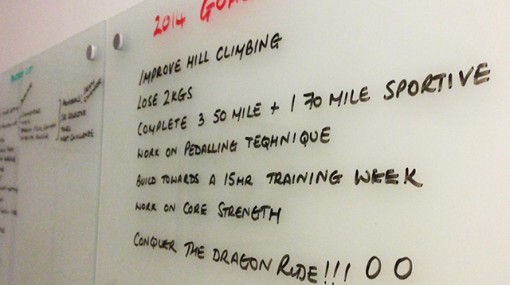 2014 GOALS
IMPROVE HILL CLIMBING
LOSE 2KGS
COMPLETE 3 50 MILE + 1 70 MILE SPORTIVE
WORK ON PEDALLING TEQHNIQUE
BUILD TOWARDS A 15HR TRAINING WEEK
WORK ON CORE STRENGTH
CONQUER THE DRAGON RIDE!!! O O